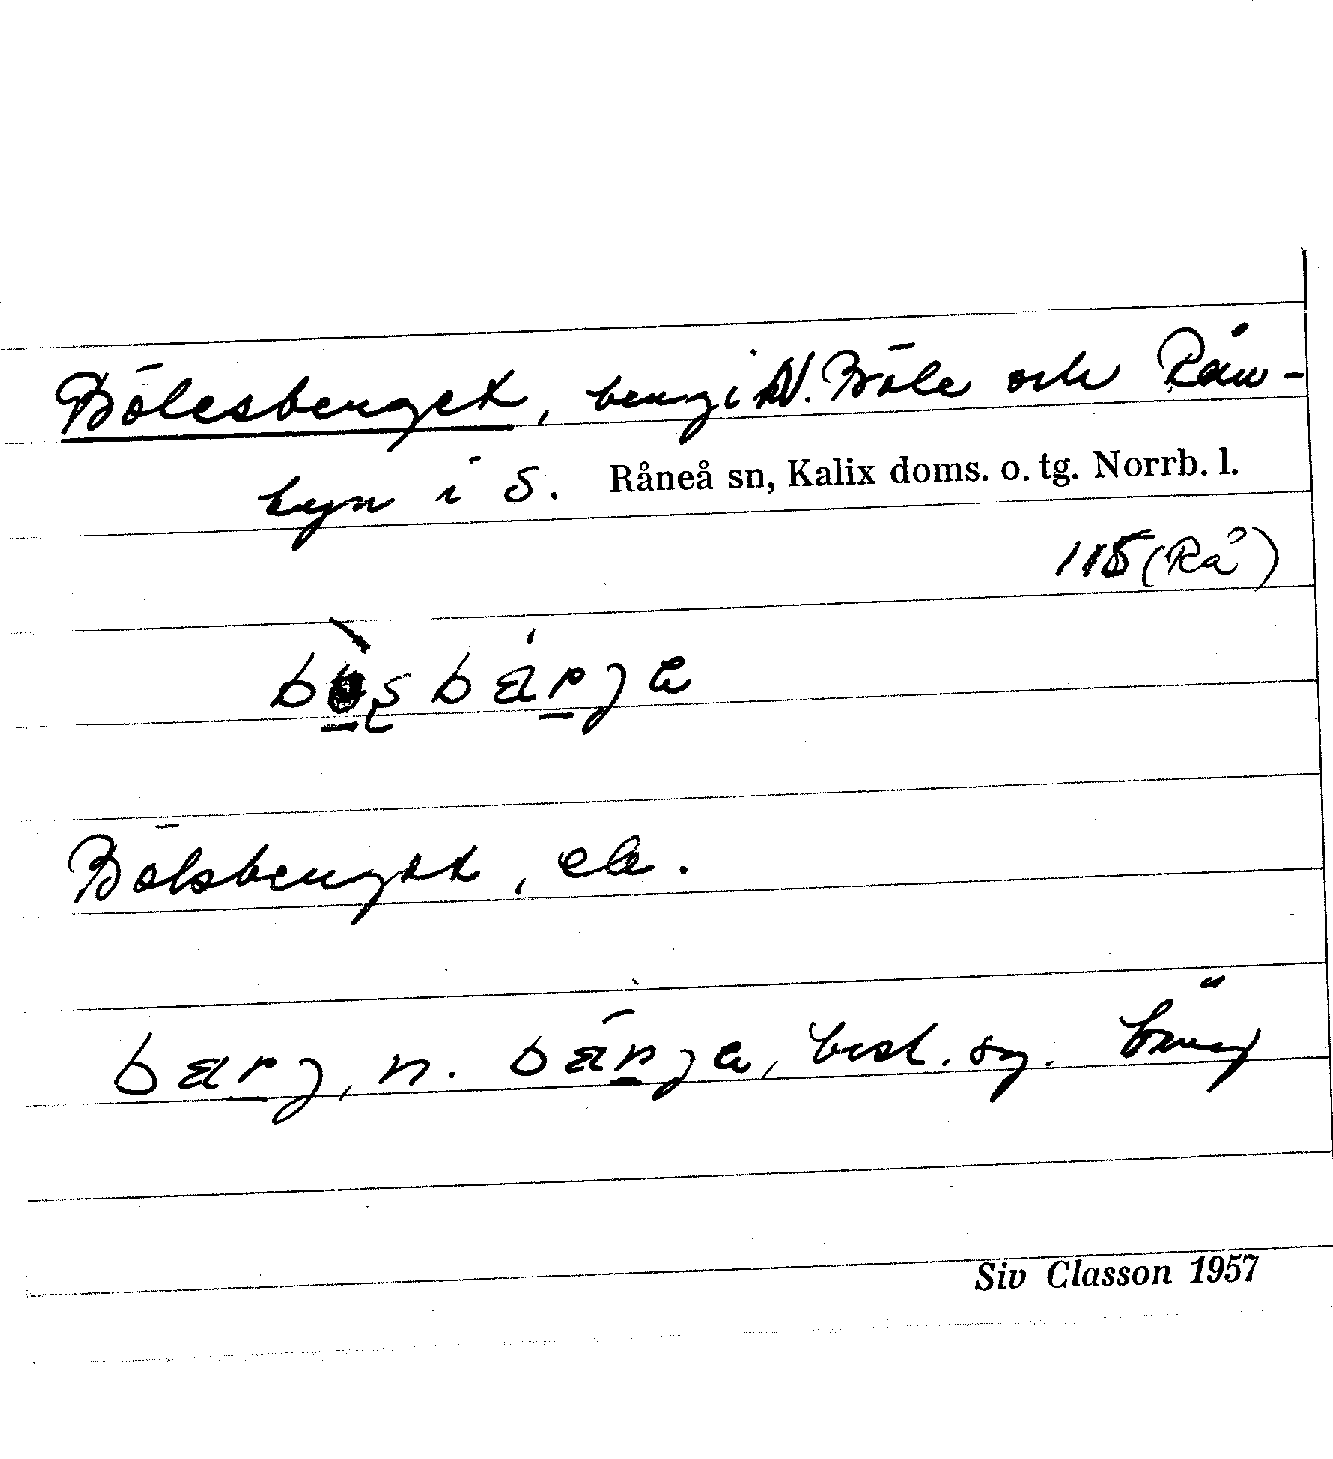 Bölesberget, berg i N. Böle och Rån-
byn i S. Råneå sn, Kalix doms. o. tg. Norrb. l.
115 (Rå)
bärja
Bölsberget, eb.
barj, n. bärja, best. sg. berg
Siv Classon 1957